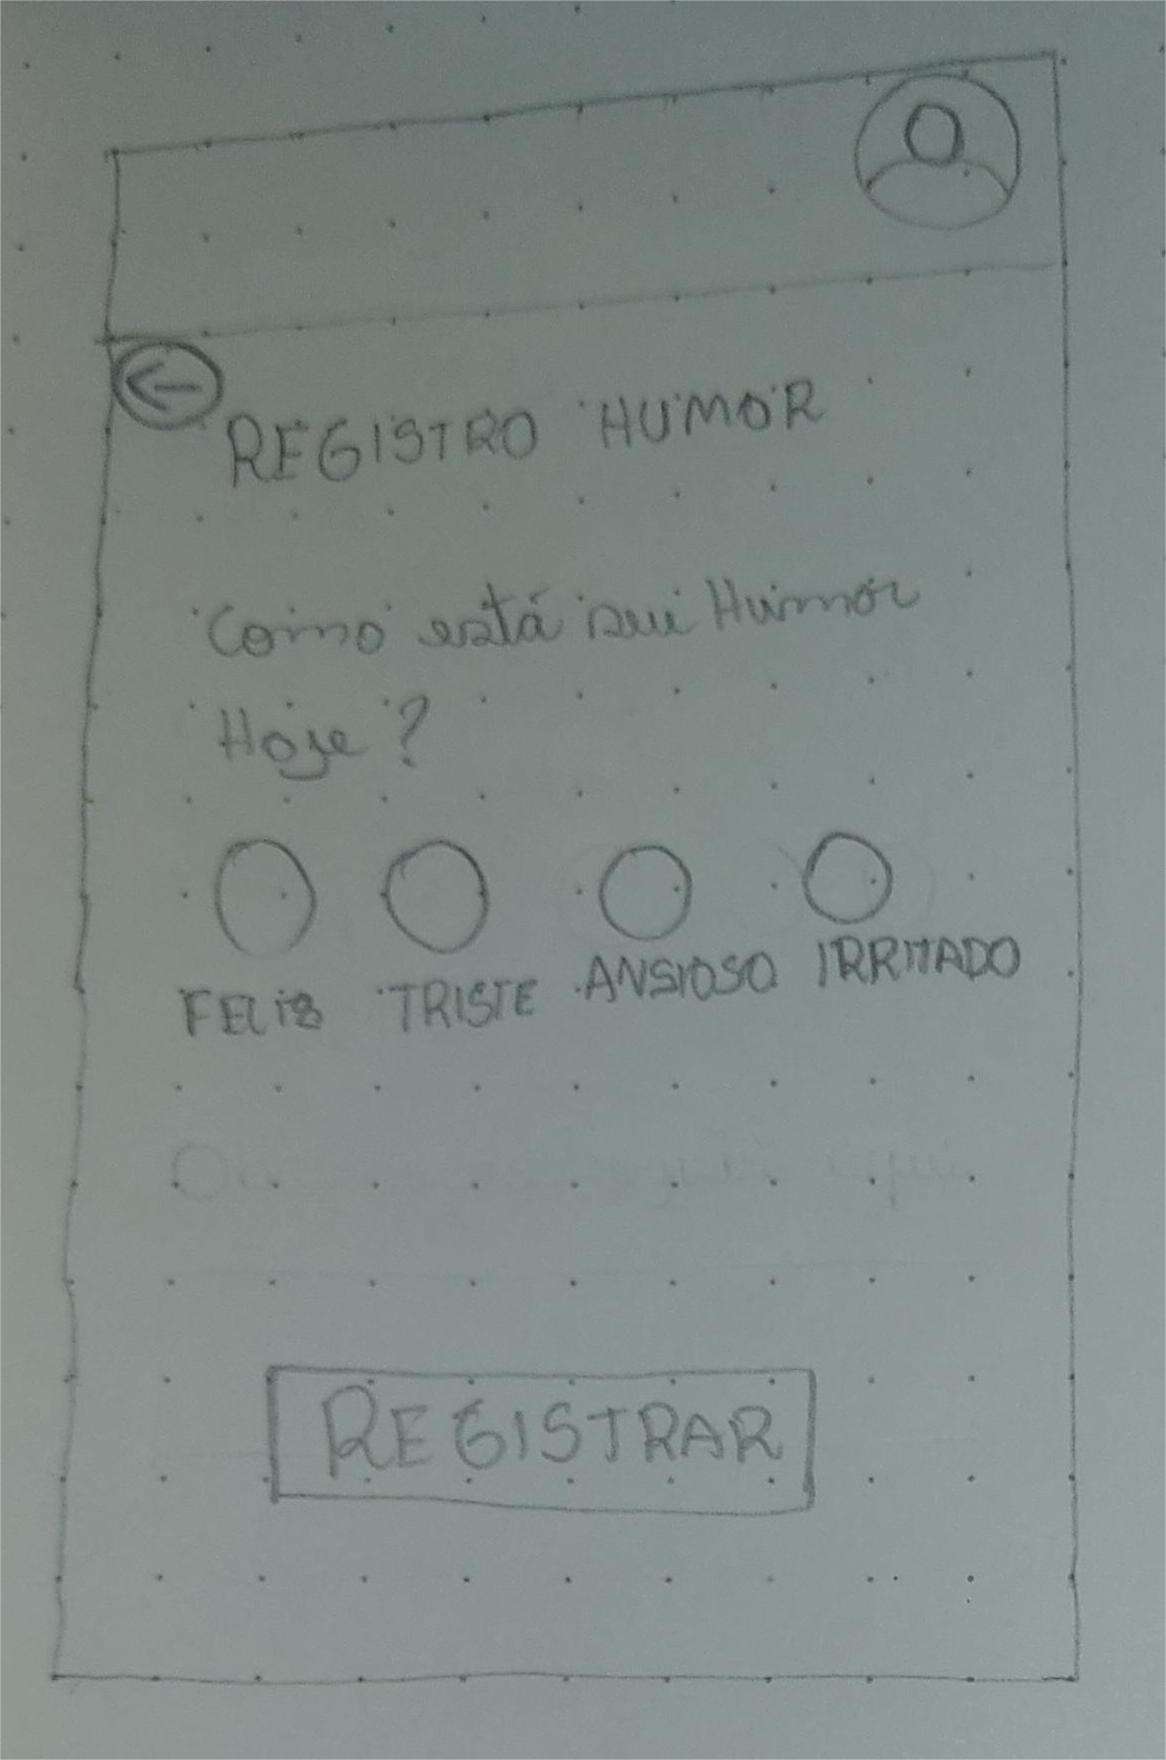 REGISTRO HUMOR
Como está seu Humor
Hoje ?
FELIZ TRISTE ANSIOSO IRRITADO
REGISTRAR